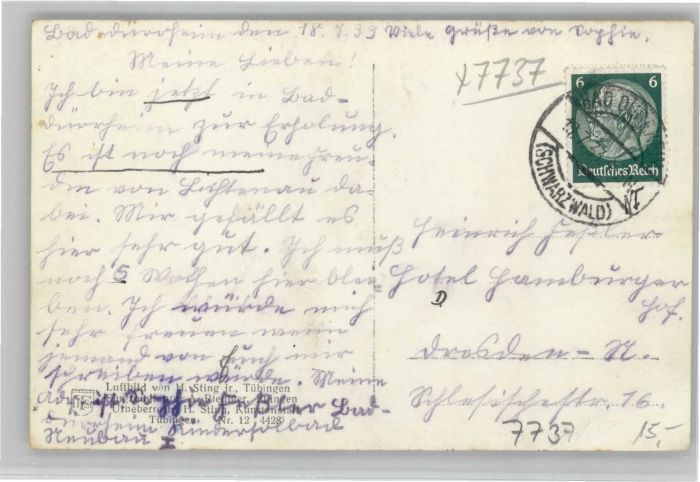 Bad-dürrheim den 18. 7. 39 Viele Grüße von Sophie.
Meine Lieben!
Ich bin jetzt in Bad-
dürrheim zur Erholung.
Es ist noch meine Freun-
din von Lichtenau da-
bei. Mir gefällt es
hier sehr gut. Ich muß
noch 5 Wochen hier blei-
ben. Ich würde mich
sehr freuen wenn
jemand von Euch mir
schreiben würde. Meine
Luftbild von H. Sting jr., Tübingen
Urheber H. Sting, Kunstanstalt
Tübingen Nr. 12 4428
Bad-
dürrheim Kindersolbad
Neubau I
x7737
6 6
Deutsches Reich
BAD DÜRRHEIM
(SCHWARZWALD)
Heinrich
Hotel Hamburger
Hof.
D
Dresden-N.
Schlesischestr. 16.
7737
15,-